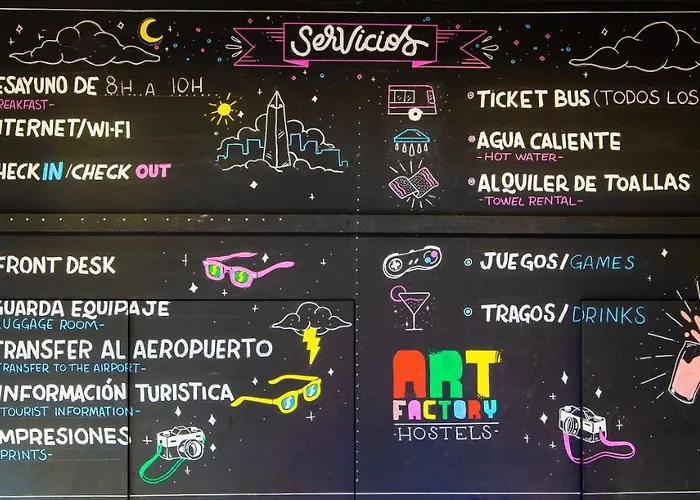 Servicios
ESAYUNO DE 8H. A 10H
REAKFAST-
NTERNET/WI-FI
HECK IN / CHECK OUT
TICKET BUS (TODOS LOS
AGUA CALIENTE
-HOT WATER-
ALQUILER DE TOALLAS
-TOWEL RENTAL-
FRONT DESK
GUARDA EQUIPAJE
LUGGAGE ROOM-
TRANSFER AL AEROPUERTO
TRANSFER TO THE AIRPORT-
INFORMACIÓN TURISTICA
TOURIST INFORMATION-
MPRESIONES
PRINTS-
JUEGOS/GAMES
TRAGOS/DRINKS
ART
FACTORY
-HOSTELS-